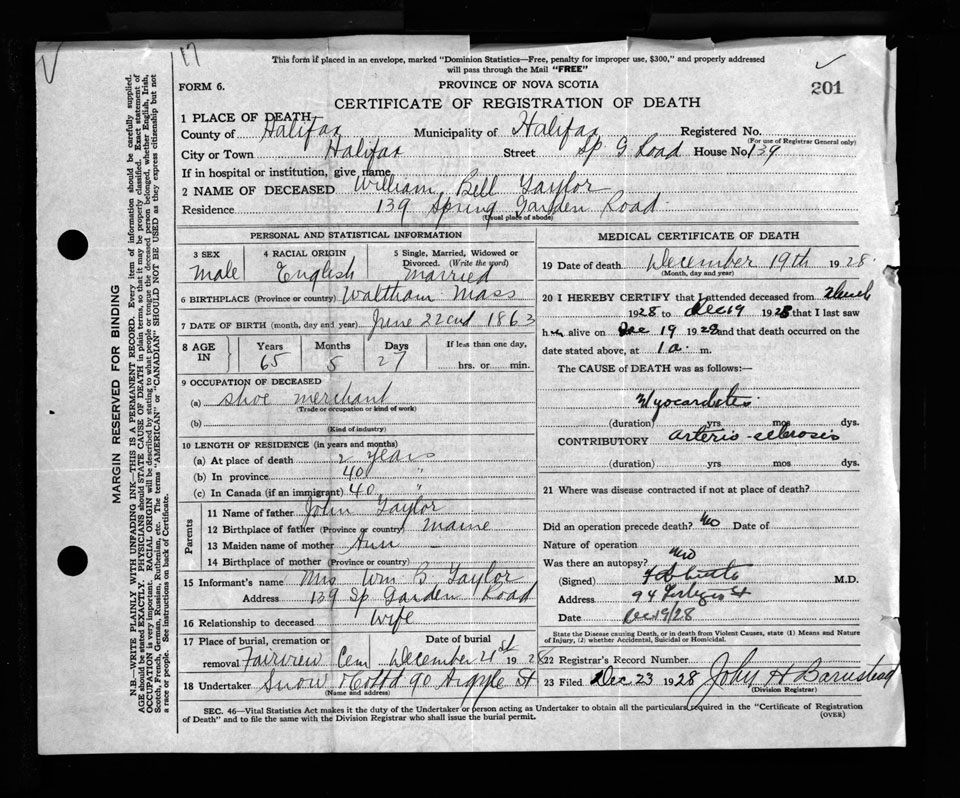 17
This form if placed in an envelope, marked "Dominion Statistics—Free, penalty for improper use, $300," and properly addressed
will pass through the Mail "FREE"
FORM 6.
PROVINCE OF NOVA SCOTIA
201
CERTIFICATE OF REGISTRATION OF DEATH
1 PLACE OF DEATH
County of Halifax Municipality of Halifax Registered No.
(For use of Registrar General only)
City or Town Halifax Street Sp G Road House No. 139
If in hospital or institution, give name
2 NAME OF DECEASED William Bell Taylor
Residence 139 Spring Garden Road
(Usual place of abode)
PERSONAL AND STATISTICAL INFORMATION
3 SEX 4 RACIAL ORIGIN 5 Single, Married, Widowed or
Divorced. (Write the word)
Male English Married
6 BIRTHPLACE (Province or country) Waltham Mass
7 DATE OF BIRTH (month, day and year) June 22nd 1863
8 AGE IN Years Months Days If less than one day,
65 5 27 hrs. or min.
9 OCCUPATION OF DECEASED
(a) Shoe merchant
(Trade or occupation or kind of work)
(b)
(Kind of industry)
10 LENGTH OF RESIDENCE (in years and months)
(a) At place of death 2 years
(b) In province 40 "
(c) In Canada (if an immigrant) 40 "
Parents
11 Name of father John Taylor
12 Birthplace of father (Province or country) Maine
13 Maiden name of mother Ann —
14 Birthplace of mother (Province or country)
15 Informant's name Mrs Wm B. Taylor
Address 139 Sp Garden Road
16 Relationship to deceased Wife
17 Place of burial, cremation or Date of burial
removal Fairview Cem December 21st 1928
18 Undertaker Snow 90 Argyle St
(Name and address)
MEDICAL CERTIFICATE OF DEATH
19 Date of death December 19th 1928.
(Month, day and year)
20 I HEREBY CERTIFY that I attended deceased from
1928 to Dec 19 1928 that I last saw
him alive on Dec 19 1928 and that death occurred on the
date stated above, at 1 a. m.
The CAUSE of DEATH was as follows:—
Myocarditis
(duration) yrs mos dys.
CONTRIBUTORY Arterio-sclerosis
(duration) yrs mos dys.
21 Where was disease contracted if not at place of death?
Did an operation precede death? No Date of
Nature of operation
Was there an autopsy? No
(Signed) M.D.
Address 94 St
Date Dec 19/28
State the Disease causing Death, or in death from Violent Causes, state (1) Means and Nature
of Injury, (2) whether Accidental, Suicidal or Homicidal.
22 Registrar's Record Number
23 Filed Dec 23 1928 John H Barnstead
(Division Registrar)
SEC. 46—Vital Statistics Act makes it the duty of the Undertaker or person acting as Undertaker to obtain all the particulars required in the "Certificate of Registration
of Death" and to file the same with the Division Registrar who shall issue the burial permit.
(OVER)
MARGIN RESERVED FOR BINDING
N.B.—WRITE PLAINLY WITH UNFADING INK—THIS IS A PERMANENT RECORD. Every item of information should be carefully supplied.
AGE should be stated EXACTLY. PHYSICIANS should STATE CAUSE OF DEATH in plain terms, so that it may be properly classified. Exact statement of
OCCUPATION is very important. RACIAL ORIGIN will be described by stating to what people or tongue the deceased person belonged, whether English, Irish,
Scotch, French, German, Russian, Ruthenian, etc. The terms "AMERICAN" or "CANADIAN" SHOULD NOT BE USED as they express citizenship but not
a race or people. See instructions on back of Certificate.